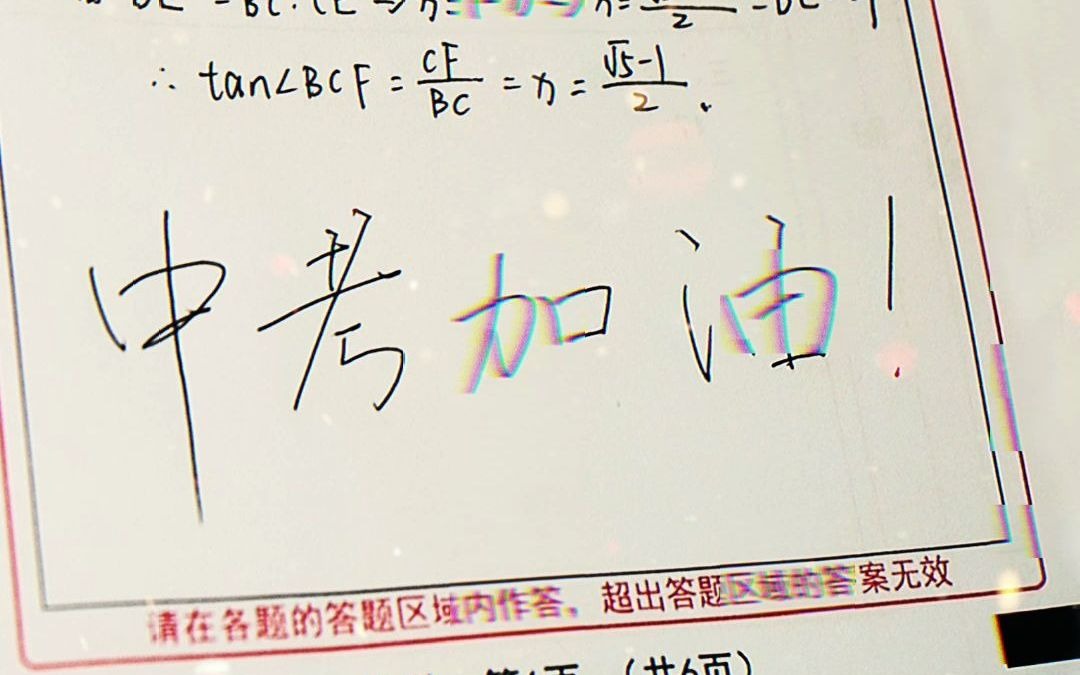 ∴ tan∠BCF = CF/BC = x = (√5-1)/2.
中考加油!
请在各题的答题区域内作答，超出答题区域的答案无效
(共6页)